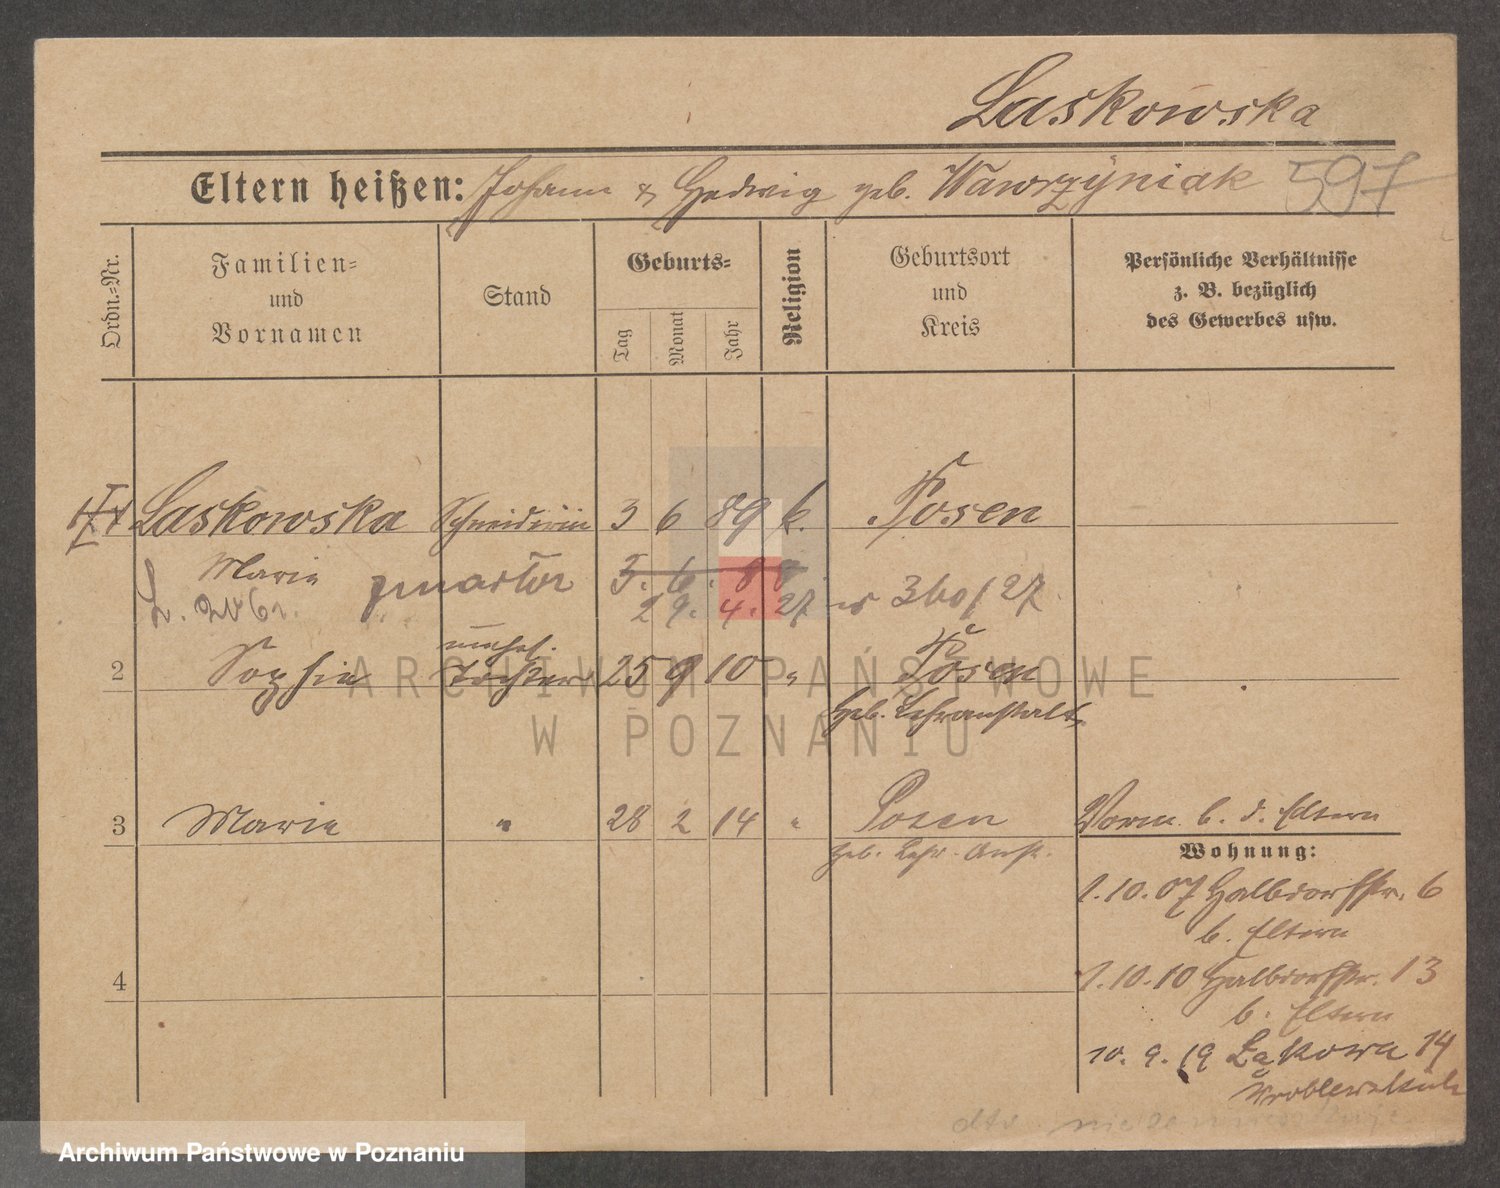 Laskowska
Eltern heißen: Johann & Hedwig geb. Wawrzyniak 597
Ordn.-Nr.
Familien-
und
Vornamen
Stand
Geburts-
Tag
Monat
Jahr
Religion
Geburtsort
und
Kreis
Persönliche Verhältnisse
z. B. bezüglich
des Gewerbes usw.
Laskowska Schneiderin 3 6 89 k. Posen
Marie zmarła 3. 6. 88
29. 4. 27 360/27
unehel.
2 Sophie Tochter 25 9 10 " Posen
Heb. Lehranstalt
3 Marie " 28 2 14 " Posen
Heb. Lehr-Anst.
Vorm. b. d. Eltern
Wohnung:
1.10.07 Halbdorfstr. 6
b. Eltern
1.10.10 Halbdorfstr. 13
b. Eltern
4
10. 9. 19 Łąkowa 14
ARCHIWUM PAŃSTWOWE
W POZNANIU
Archiwum Państwowe w Poznaniu